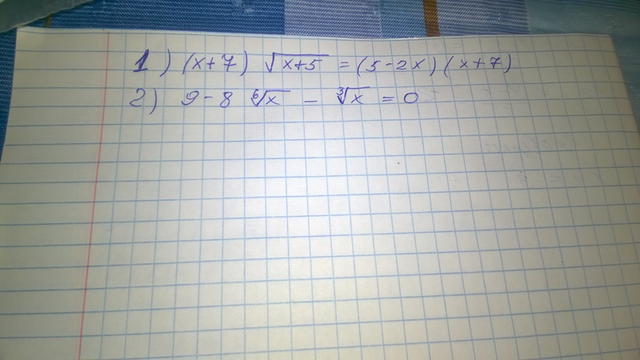 1) (x+7) √(x+5) = (5-2x)(x+7)
2) 9-8 ⁶√x - ³√x = 0